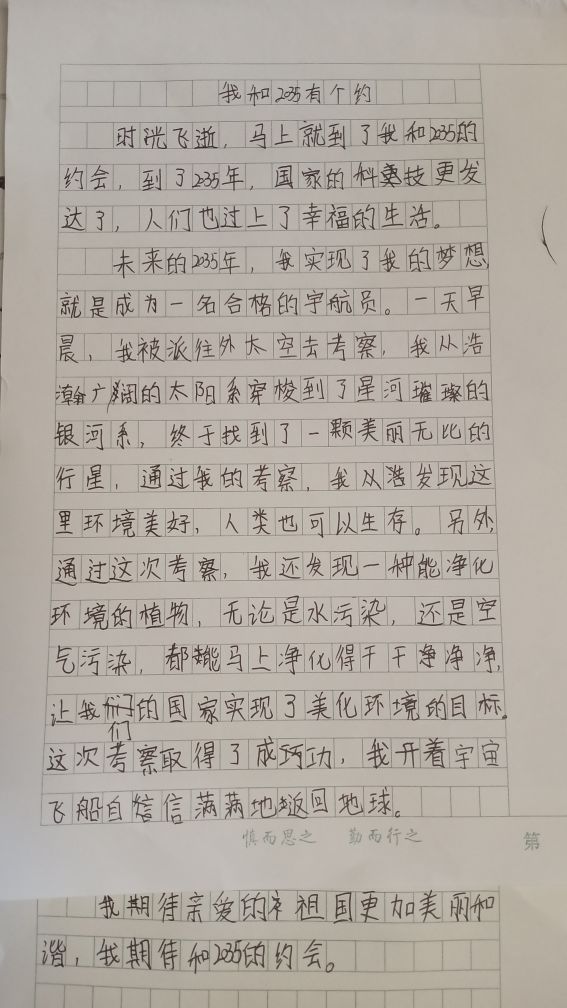 我和2035有个约
时光飞逝，马上就到了我和2035的
约会，到了2035年，国家的科技更发
达了，人们也过上了幸福的生活。
未来的2035年，我实现了我的梦想
就是成为一名合格的宇航员。一天早
晨，我被派往外太空去考察，我从浩
瀚广阔的太阳系穿梭到了星河璀璨的
银河系，终于找到了一颗美丽无比的
行星，通过我的考察，我从浩发现这
里环境美好，人类也可以生存。另外，
通过这次考察，我还发现一种能净化
环境的植物，无论是水污染，还是空
气污染，都能马上净化得干干净净，
让我们的国家实现了美化环境的目标。
这次考察取得了成功，我开着宇宙
飞船自信满满地返回地球。
慎而思之 勤而行之
第
我期待亲爱的祖国更加美丽和
谐，我期待和2035的约会。